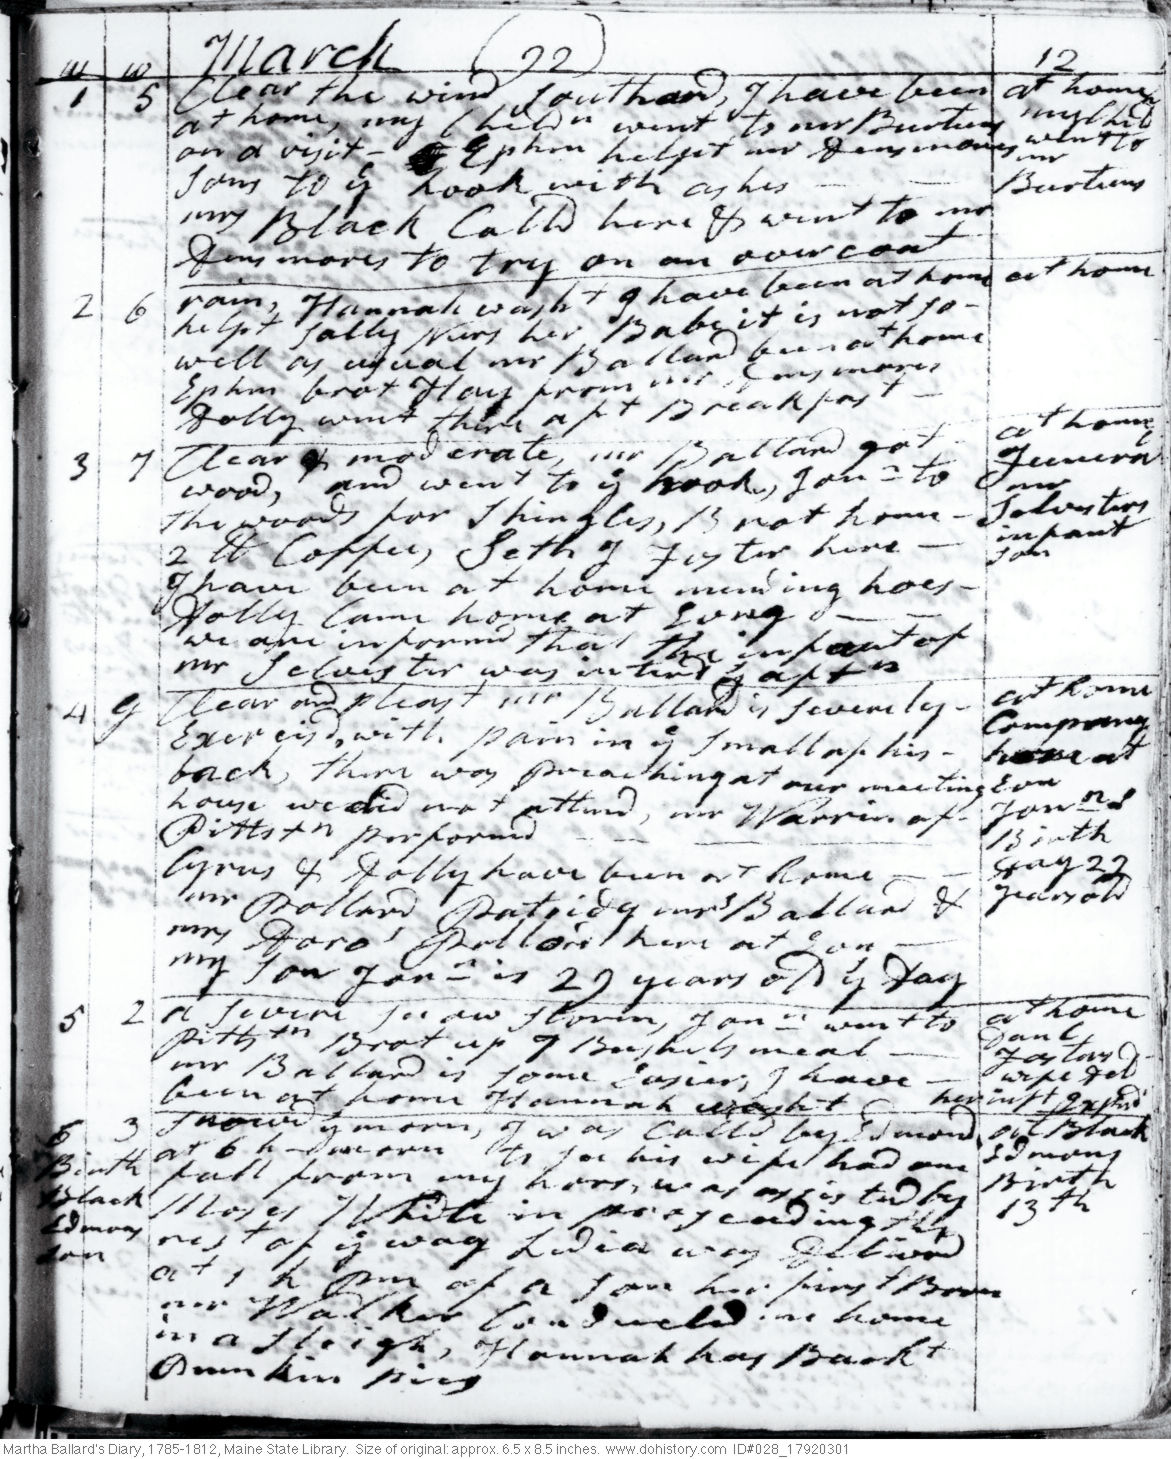 m w March (92) 12
1 5 Clear the wind Southard, I have been at home
at home, my Childn went to mr Burtuns my Child
on a visit - Ephm helpt mr Densmores went to
Sons to ye hook with ashes - - mr Burtuns
mrs Black Calld here & went to mr
Densmores to try on an over coat
2 6 rain, Hannah washt I have been at home at home
helpt Sally Nurs her Babe it is not so-
well as usual mr Ballard been at home
Ephm brot Hay from mr Densmores
Dolly went there aft Breakfast -
3 7 Clear & moderate, mr Ballard got at home
wood, and went to ye hook, Jonn to Funeral
the woods for Shingles, Brot home - mr Selvesters
2 lb Coffee, Seth & Foster here - infant
I have been at home mending hoes- Son
Dolly Came home at Evng
we are informd that the infant of
mr Selvester was interd ys aftn
4 g Clear and pleast mr Ballard is severely- at home
Exercisd with pain in ye Small of his- Company
back, there was preaching at our meeting here at
house we did not attend, mr Warrin of- Evn
Pittstn performd Jonn s
Cyrus & Dolly have been at home - Birth
mr Pollard Patridg mrs Ballard & Day 29
mrs Pollard here at Evn - years old
my Son Jonn is 29 years old ys Day
5 2 a severe snow storm, Jonn went to at home
Pittstn Brot up 7 Bushels meal -
mr Ballard is some Easier, I have - Fosters
been at home Hannah washt wife
6 3 Snowd ys morn, I was Calld by Edmond at Black
at 6 h morn to see his wife had one Edmons
Birth fall from my hors, was assisted by Birth
Black Moses White in proseeding the 13th
Edmons rest of ye way Lidia was Delivrd
Son at 1 h pm of a son her first Born
mr Walker Conducted me home
in a Sleigh, Hannah has Baekt
Pumkin pies
Martha Ballard's Diary, 1785-1812, Maine State Library. Size of original: approx. 6.5 x 8.5 inches. www.dohistory.com ID#028_17920301